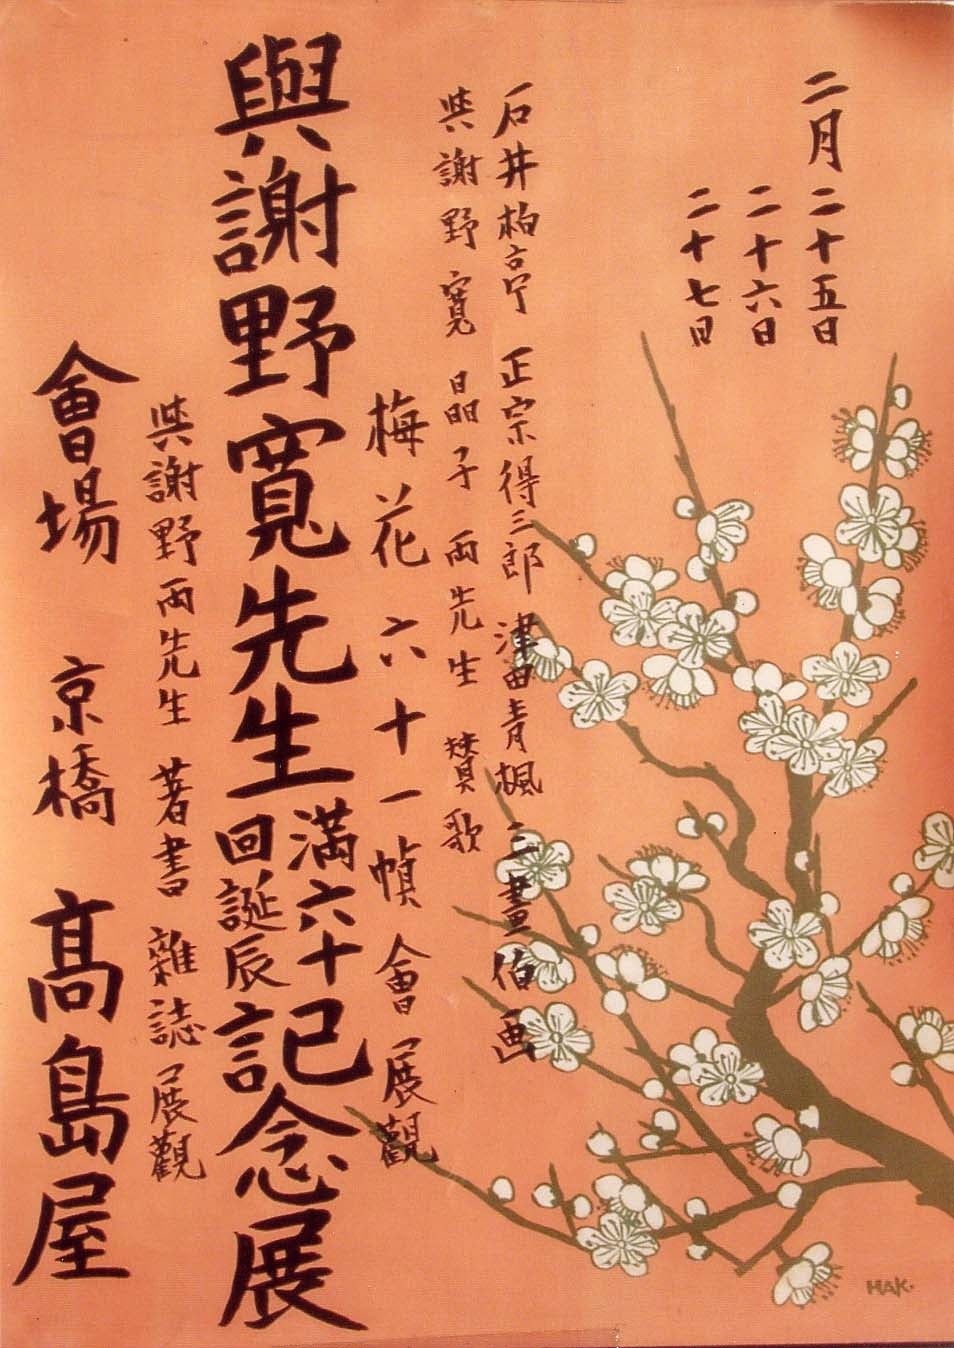 二月二十五日
二十六日
二十七日
石井柏亭 正宗得三郎 津田青楓 三畫伯画
與謝野寛 晶子両先生 賛歌
梅花六十一幀會展觀
與謝野寛先生満六十回誕辰記念展
與謝野両先生 著書雜誌展觀
會場 京橋 髙島屋
HAK.